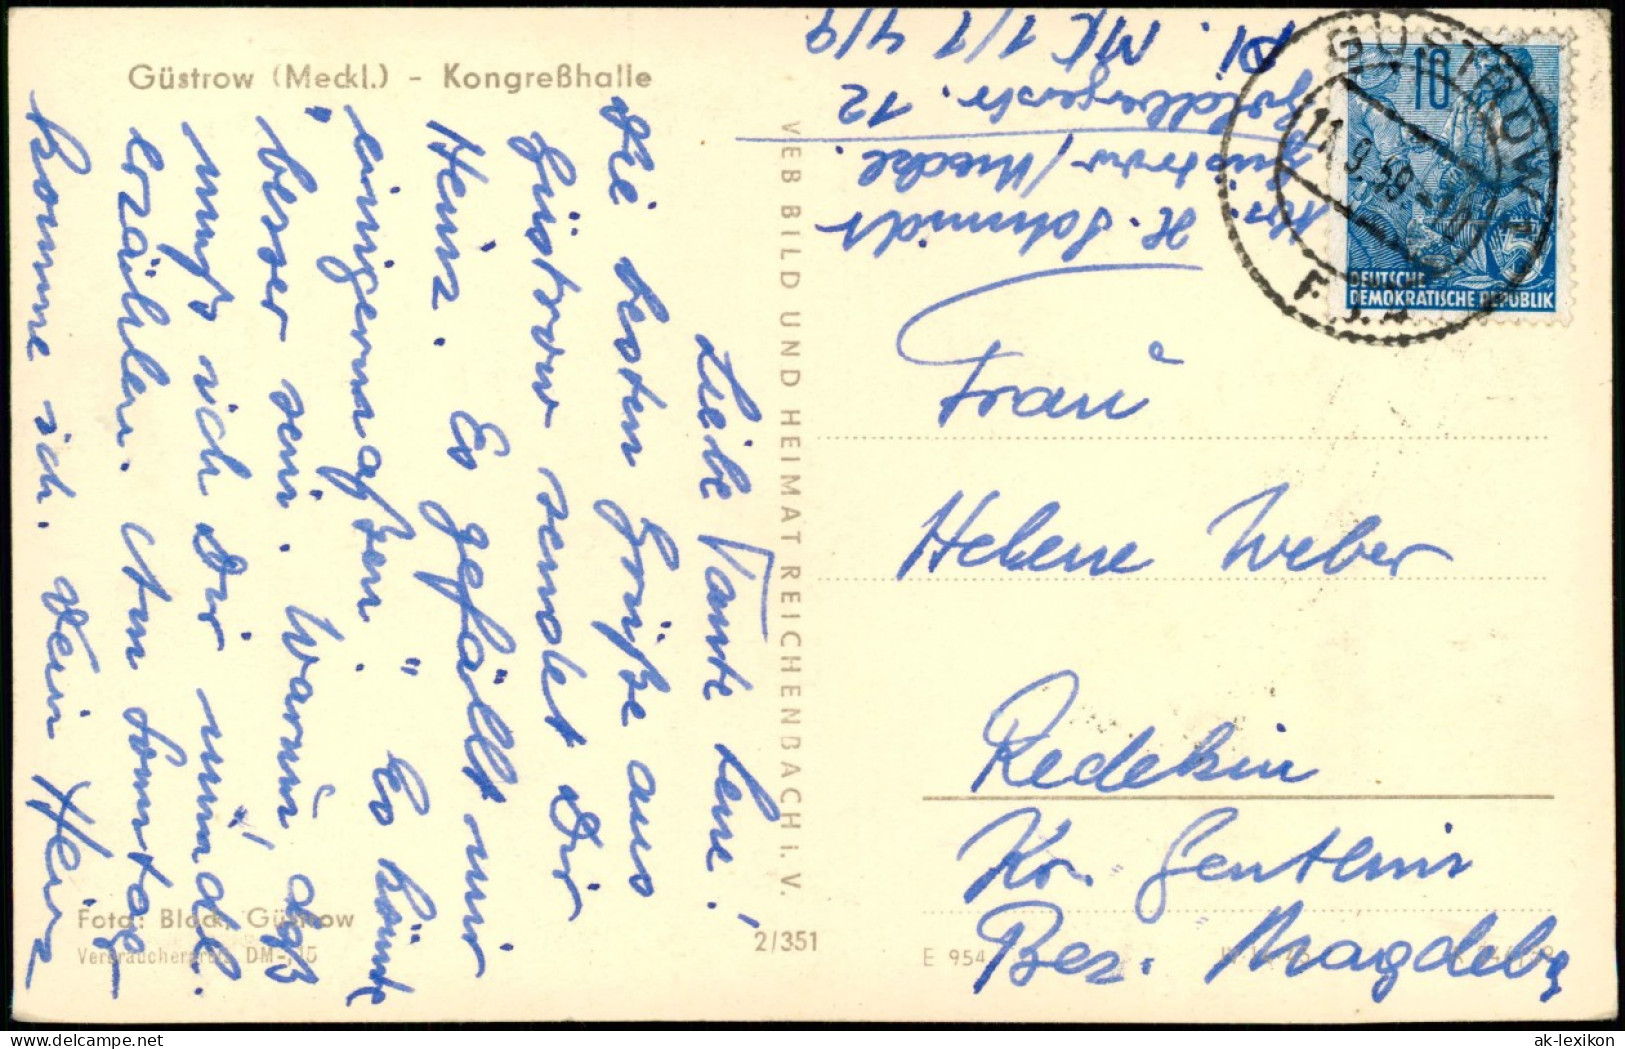 Güstrow (Meckl.) - Kongreßhalle
Liebe Tante Lene!
Die besten Grüße aus
Güstrow sendet Dir
Heinz. Es gefällt mir
"einigermaßen." Es könnte
besser sein. Warum, daß
muß ich Dir mündl.
erzählen. Am Sonntag
komme ich. Dein Heinz
Foto: Block, Güstrow
Verbraucherpreis DM -,15
VEB BILD UND HEIMAT REICHENBACH i. V.
2/351
H. Schmidt
Güstrow/Meckl.
Goldbergerstr. 12
GÜSTROW 1
11.9.59.-10
10
5
DEUTSCHE
DEMOKRATISCHE REPUBLIK
Frau
Helene Weber
Redekin
Kr. Genthin
Bez. Magdebg
E 954
ak-lexikon